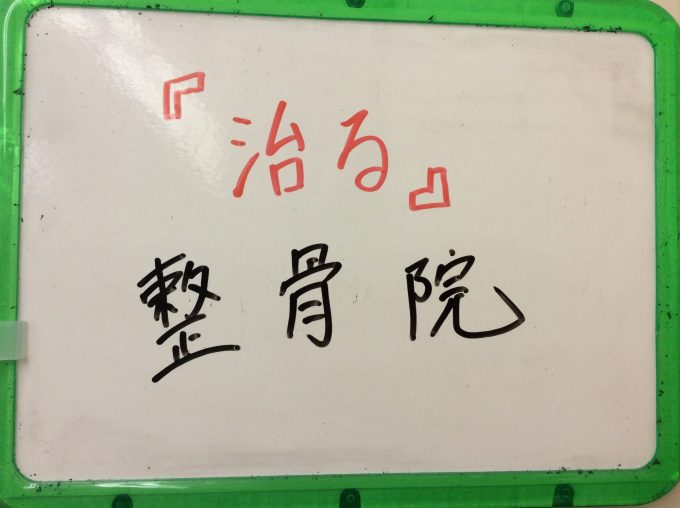 『治る』
整骨院